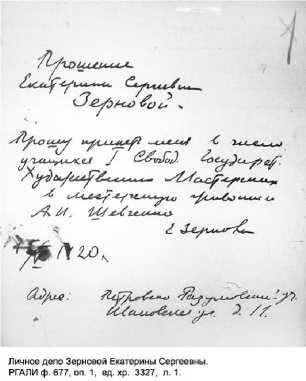 Прошение
Екатерины Сергеевны
Зерновой.
Прошу принять меня в число
учащихся I Свобод. Государст.
Художественных Мастерских
в мастерскую живописи
А.И. Шевченко
Е Зернова
20 г.
Адрес: Петровско Разумовский
Ивановская ул. д. 11.
Личное дело Зерновой Екатерины Сергеевны.
РГАЛИ ф. 677, оп. 1, ед. хр. 3327, л. 1.